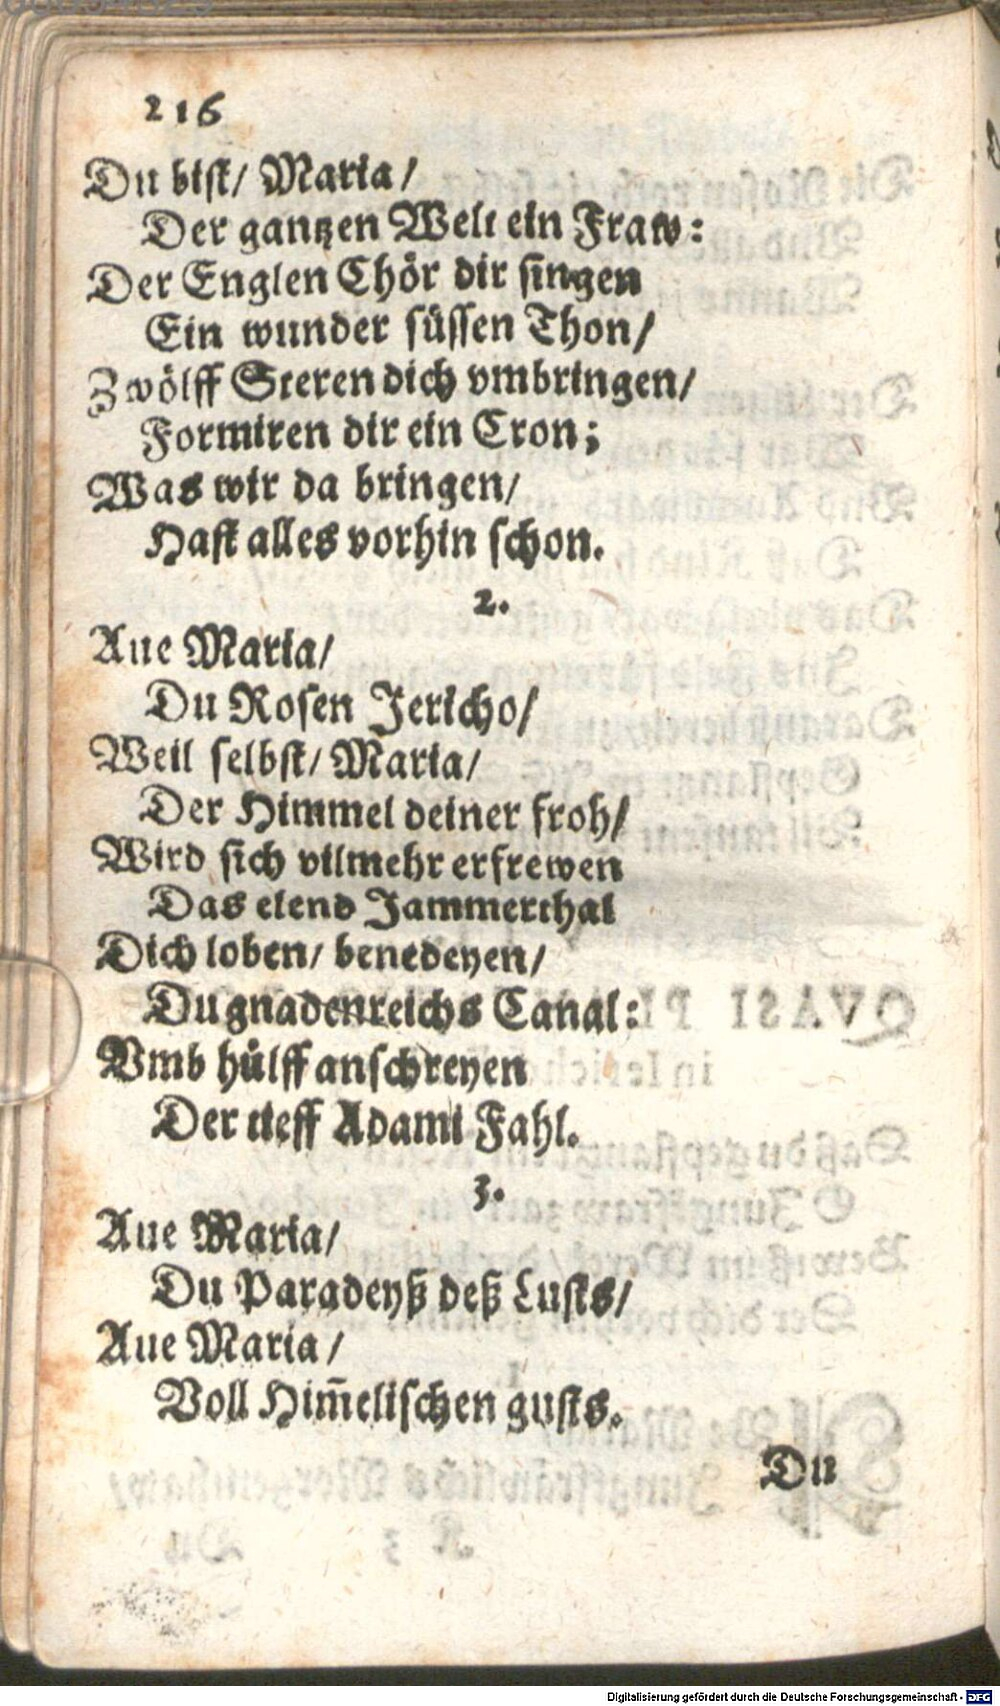 216
Du bist/ Maria/
Der gantzen Welt ein Fraw:
Der Englen Chör dir singen
Ein wunder süssen Thon/
Zwölff Steren dich vmbringen/
Formiren dir ein Cron;
Was wir da bringen/
Hast alles vorhin schon.
2.
Aue Maria/
Du Rosen Jericho/
Weil selbst/ Maria/
Der Himmel deiner froh/
Wird sich vilmehr erfrewen
Das elend Jammerthal
Dich loben/ benedeyen/
Du gnadenreichs Canal:
Vmb hülff anschreyen
Der tieff Adami Fahl.
3.
Aue Maria/
Du Paradeyß deß Lusts/
Aue Maria/
Voll Him̃elischen gusts.
Du
Digitalisierung gefördert durch die Deutsche Forschungsgemeinschaft - DFG